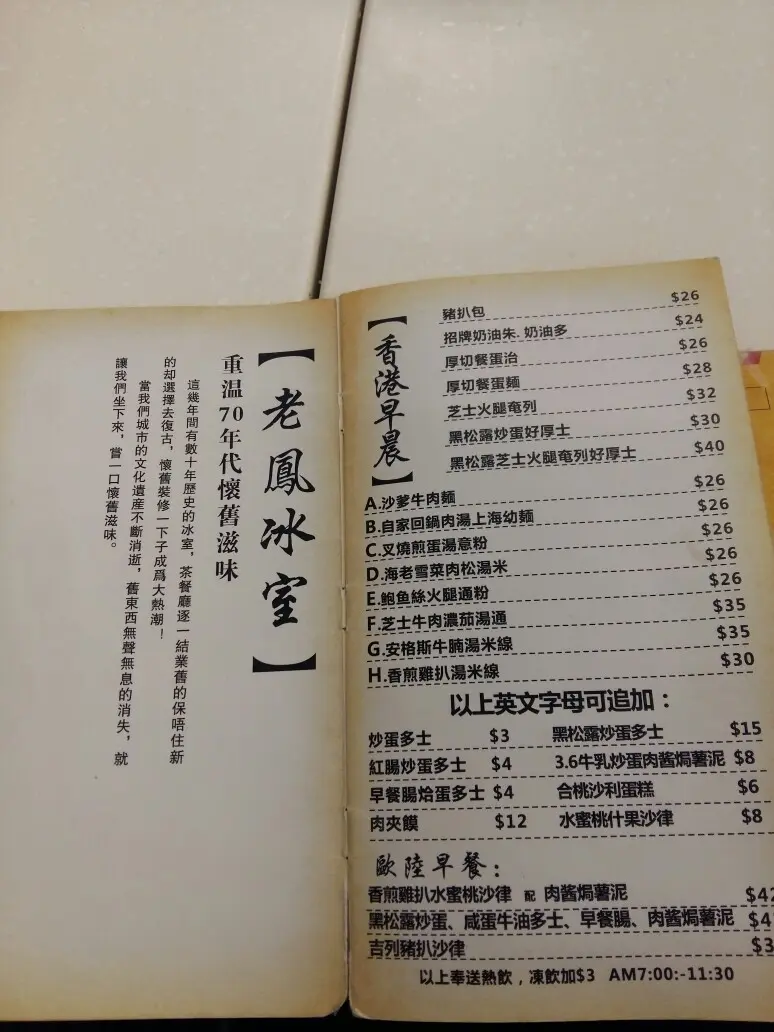 【老鳳冰室】
重温70年代懷舊滋味
這幾年間有數十年歷史的冰室，茶餐廳逐一結業舊的保唔住新
的却選擇去復古，懷舊裝修一下子成爲大熱潮！
當我們城市的文化遺産不斷消逝，舊東西無聲無息的消失，就
讓我們坐下來，嘗一口懷舊滋味。
【香港早晨】
豬扒包 $26
招牌奶油朱.奶油多 $24
厚切餐蛋治 $26
厚切餐蛋麵 $28
芝士火腿奄列 $32
黑松露炒蛋好厚士 $30
黑松露芝士火腿奄列好厚士 $40
A.沙爹牛肉麵 $26
B.自家回鍋肉湯上海幼麵 $26
C.叉燒煎蛋湯意粉 $26
D.海老雪菜肉松湯米 $26
E.鮑鱼絲火腿通粉 $26
F.芝士牛肉濃茄湯通 $35
G.安格斯牛腩湯米線 $35
H.香煎雞扒湯米線 $30
以上英文字母可追加：
炒蛋多士 $3 黑松露炒蛋多士 $15
紅腸炒蛋多士 $4 3.6牛乳炒蛋肉酱焗薯泥 $8
早餐腸烚蛋多士 $4 合桃沙利蛋糕 $6
肉夾饃 $12 水蜜桃什果沙律 $8
歐陸早餐：
香煎雞扒水蜜桃沙律 配 肉酱焗薯泥 $42
黑松露炒蛋、咸蛋牛油多士、早餐腸、肉酱焗薯泥 $4
吉列豬扒沙律 $3
以上奉送熱飲，凍飲加$3 AM7:00:-11:30